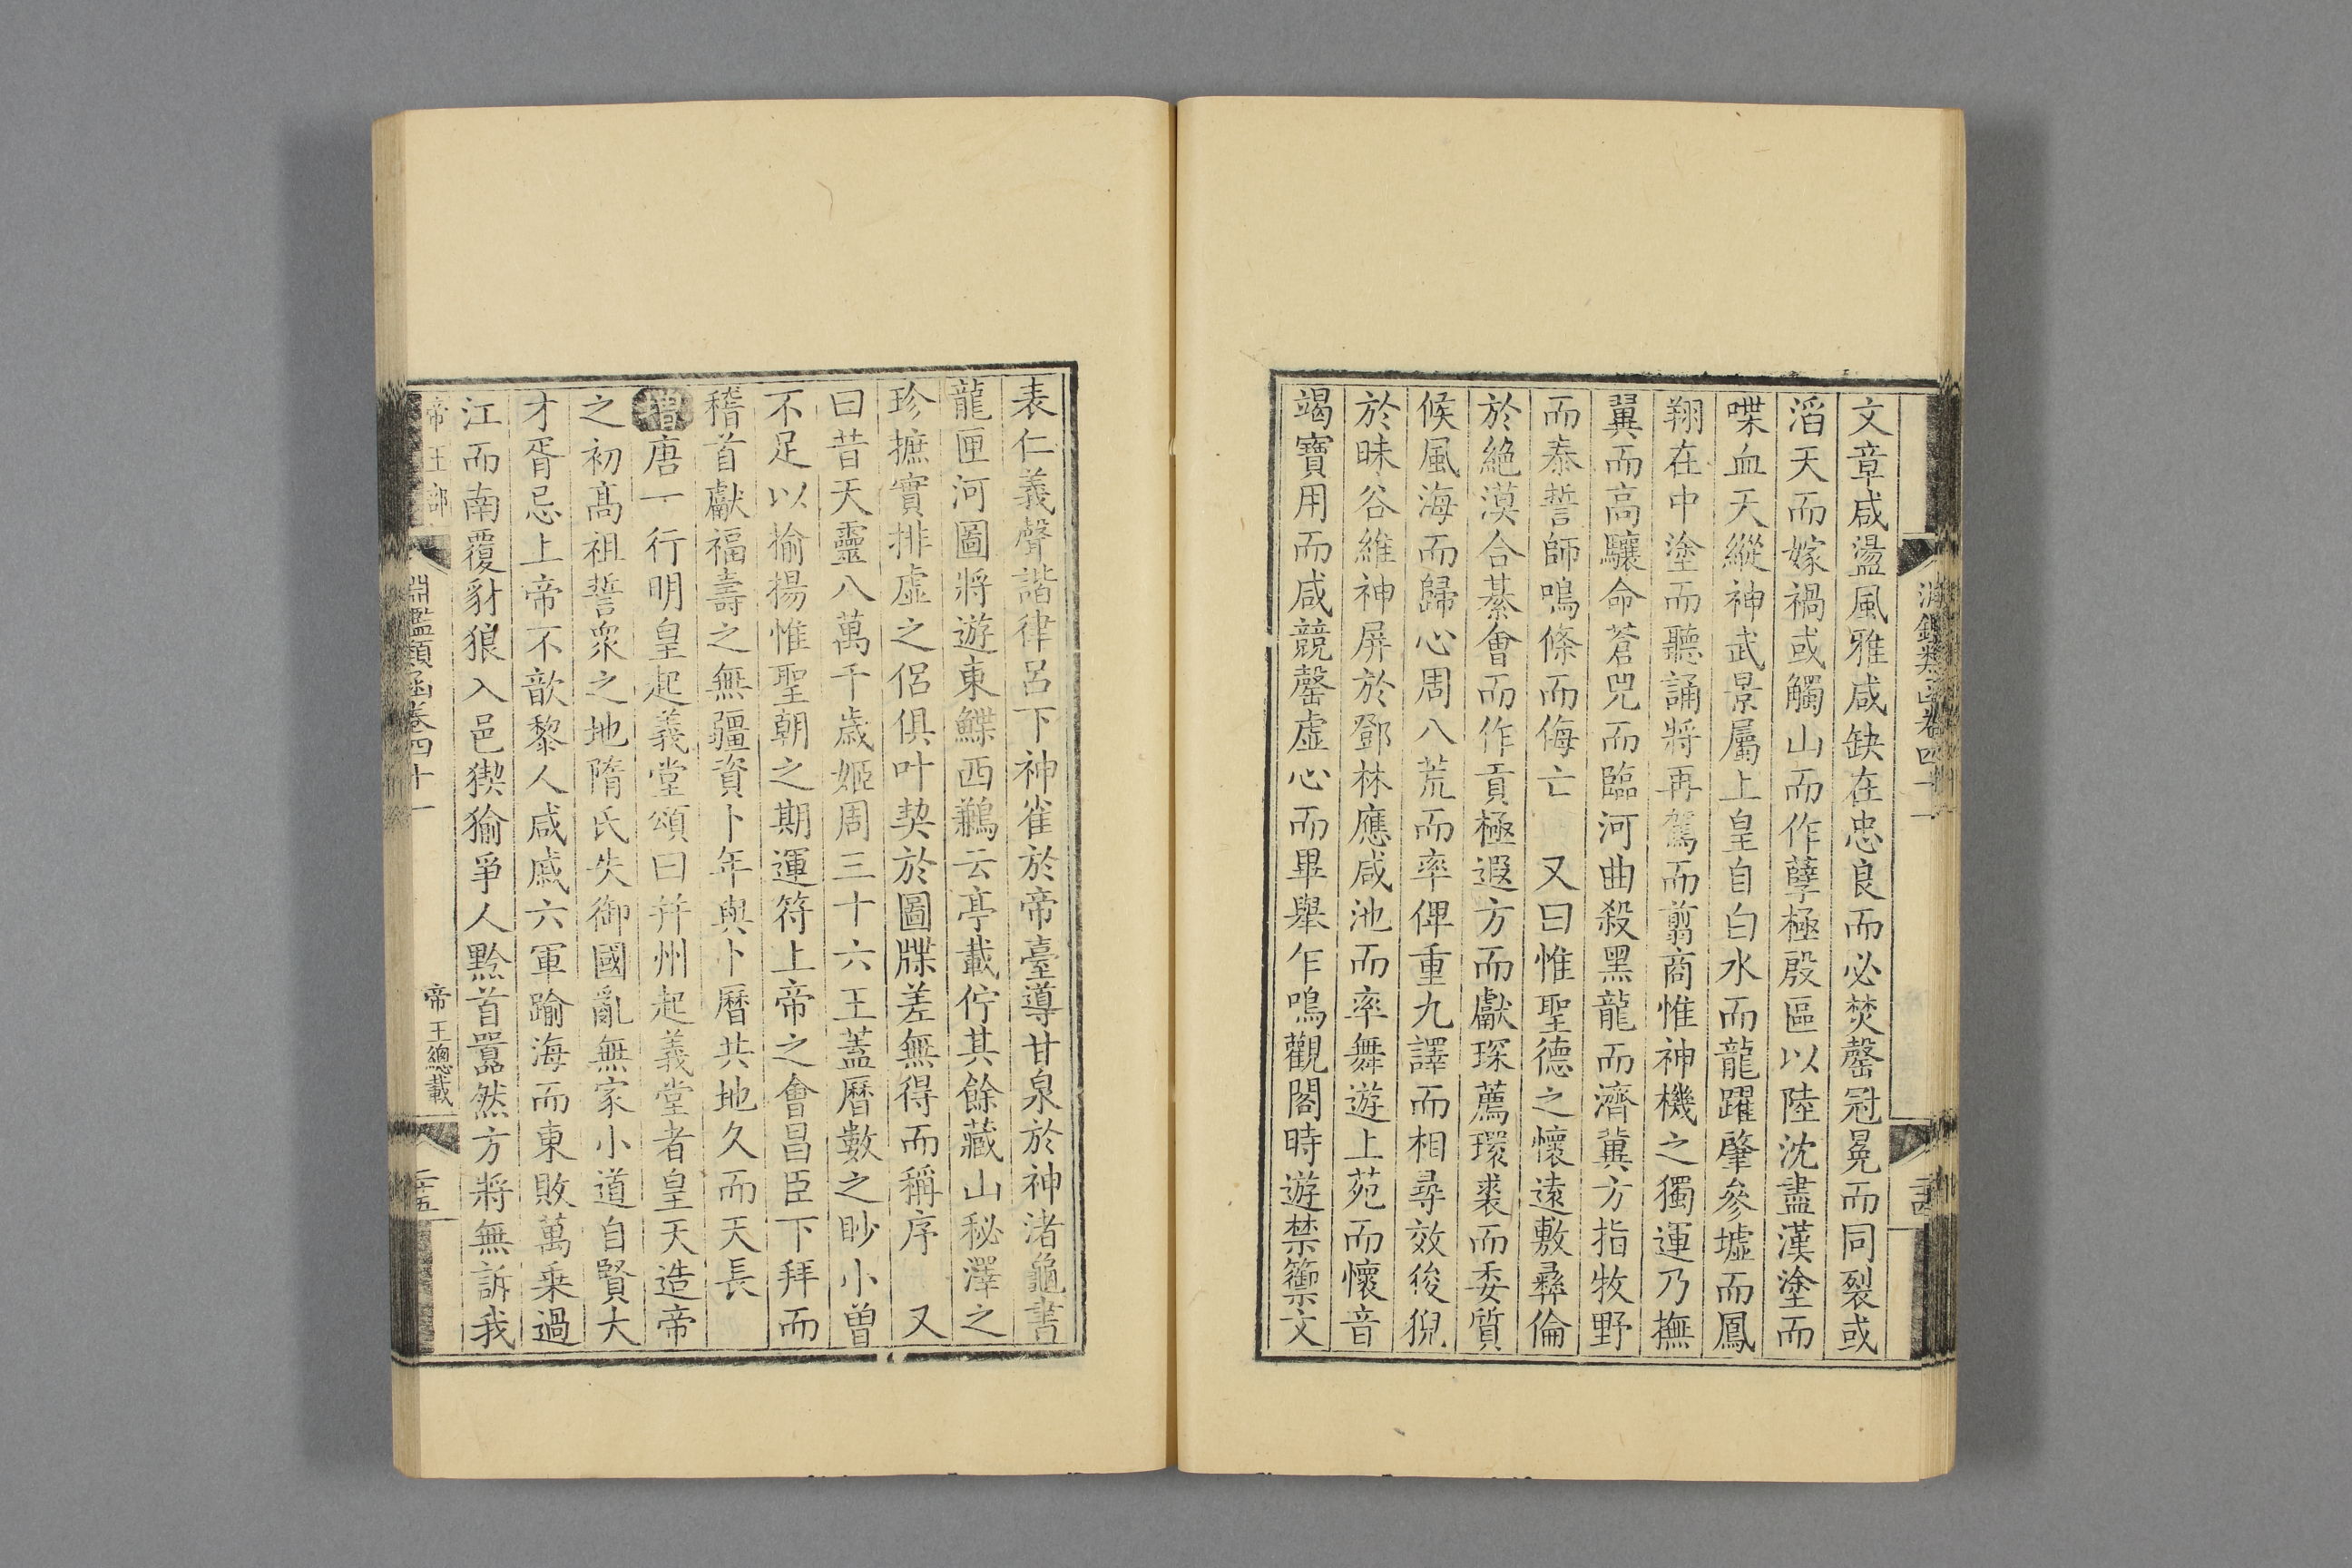 淵鑑類函卷四十一
二十四
文章咸盪風雅咸缺在忠良而必焚罄冠冕而同裂或
滔天而嫁禍或觸山而作孽極殷區以陸沈盡漢塗而
喋血天縱神武景屬上皇自白水而龍躍肇參墟而鳳
翔在中塗而聽誦將再駕而翦商惟神機之獨運乃撫
翼而高驤命蒼兕而臨河曲殺黑龍而濟冀方指牧野
而泰誓師鳴條而侮亡 又曰惟聖德之懷遠敷彝倫
於絕漠合綦會而作貢極遐方而獻琛薦環裘而委質
候風海而歸心周八荒而率俾重九譯而相尋效後猊
於昧谷維神屏於鄧林應咸池而率舞遊上苑而懷音
竭寶用而咸競罄虛心而畢舉乍鳴觀閣時遊禁籞文
表仁義聲諧律呂下神雀於帝臺導甘泉於神渚龜書
龍匣河圖將遊東鰈西鶼云亭載佇其餘藏山秘澤之
珍摭實排虛之侶俱叶契於圖牒差無得而稱序 又
曰昔天靈八萬千歲姬周三十六王蓋曆數之眇小曾
不足以揄揚惟聖朝之期運符上帝之會昌臣下拜而
稽首獻福壽之無疆資卜年與卜曆共地久而天長
增唐一行明皇起義堂頌曰并州起義堂者皇天造帝
之初高祖誓眾之地隋氏失御國亂無家小道自賢大
才胥忌上帝不歆黎人咸慼六軍踰海而東敗萬乘過
江而南覆豺狼入邑猰㺄爭人黔首嚚然方將無訴我
帝王部
淵鑑類函卷四十一
帝王總載
二十五